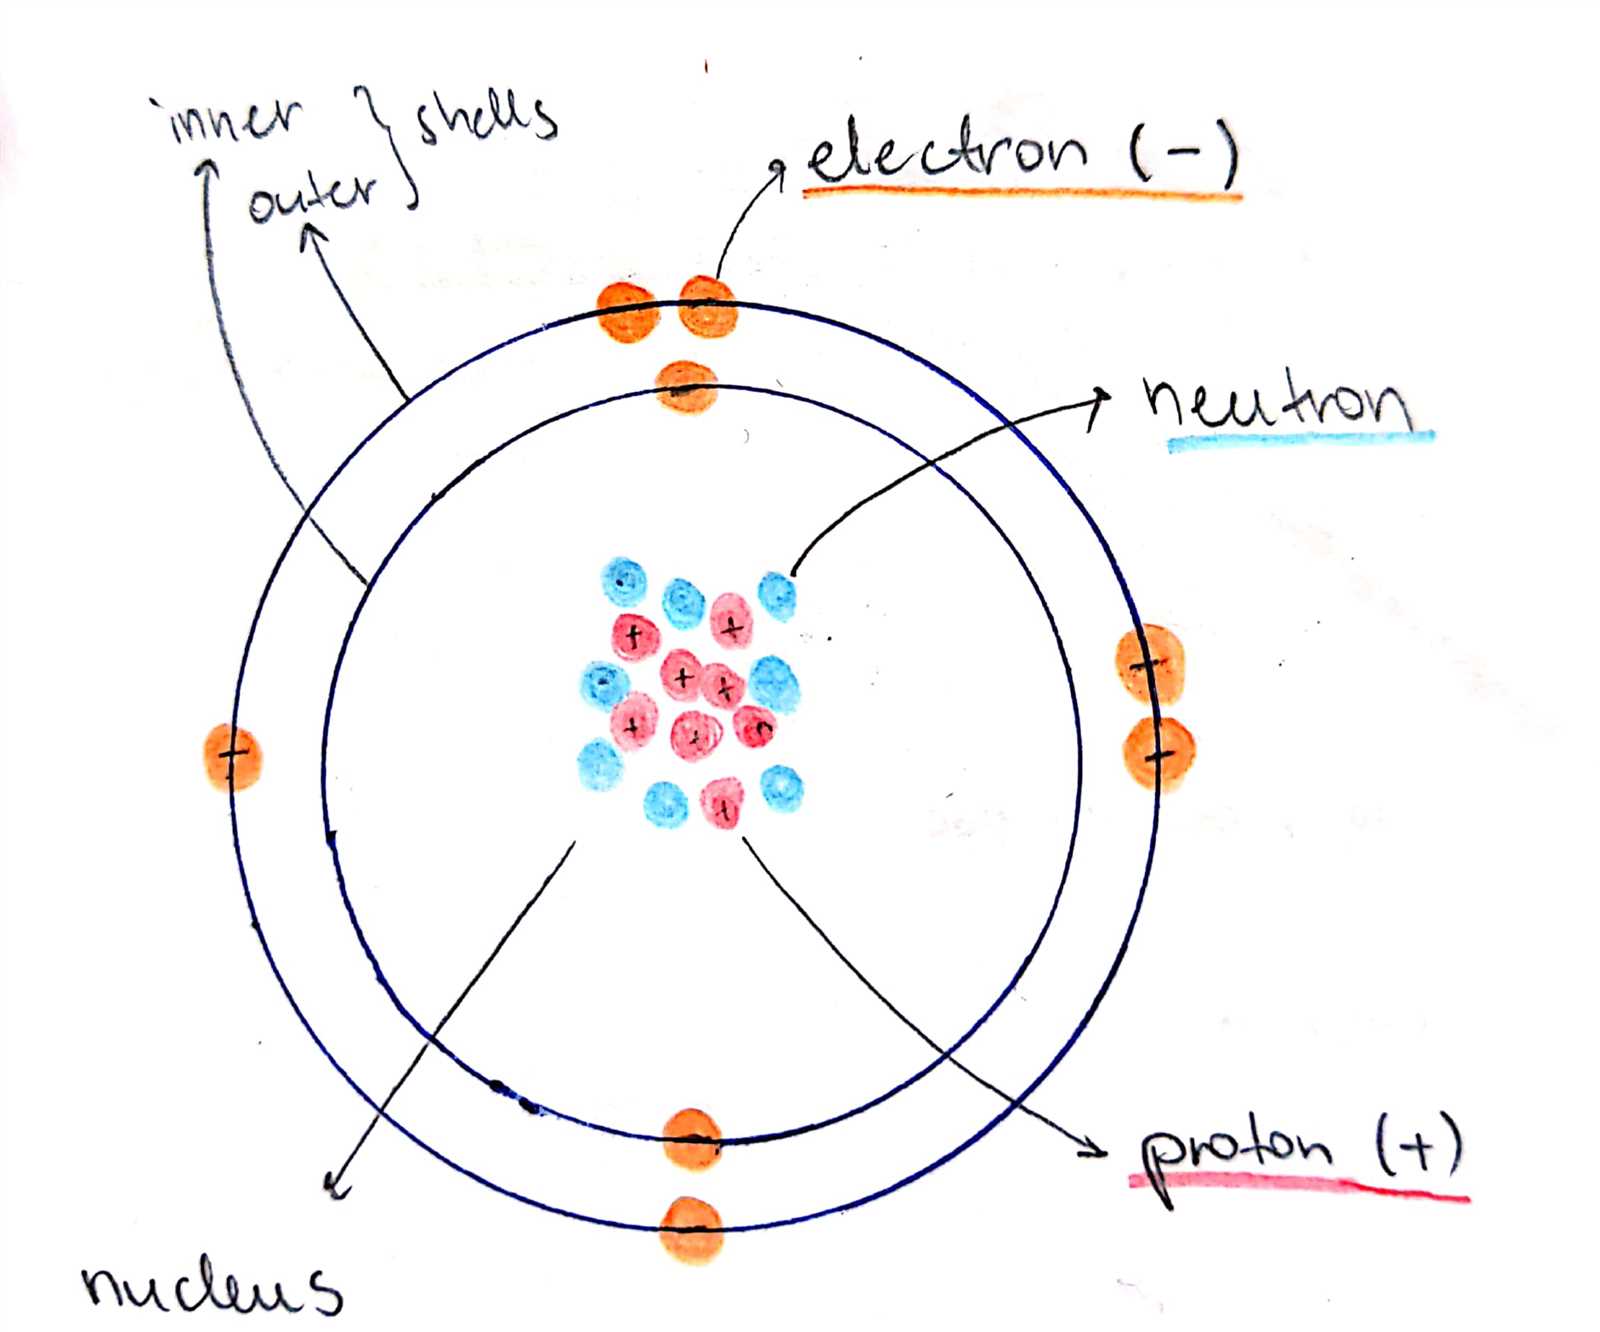 inner } shells
outer
electron (-)
neutron
+ +
+ +
+ +
+
proton (+)
nucleus